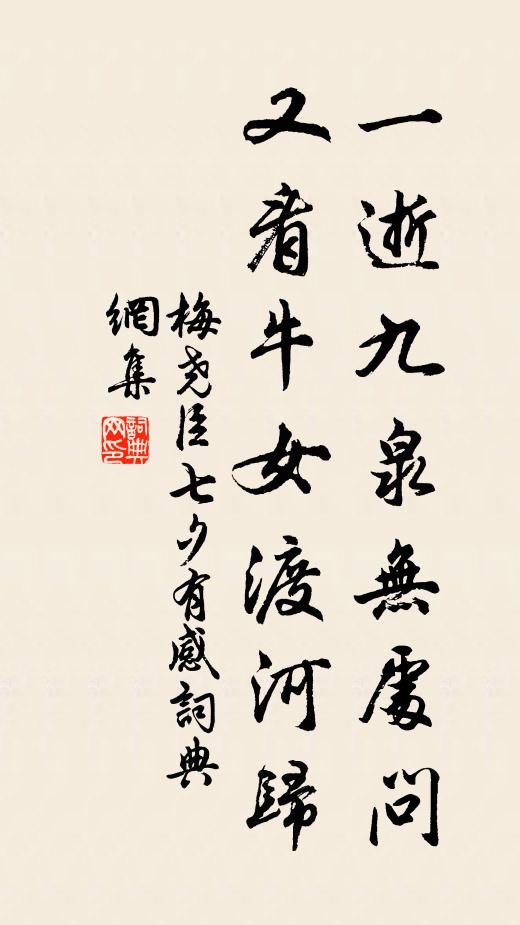 一逝九泉無處問
又看牛女渡河歸
梅尧臣七夕有感詞典
網集
詞典
网印